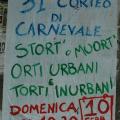 31° CORTEO
DI
CARNEVALE
STORT' O MUORT'
ORTI URBANI
E
TORTI INURBANI
DOMENICA 10
FEBB